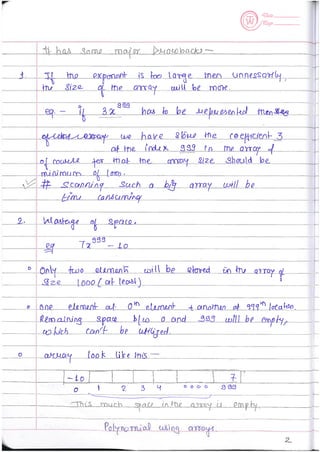 Date
Page
# has some major Drawbacks -
1. If the exponent is too large then unnessarly,
the size of the array will be more.
eg - if 3x^999 has to be represented then
we have store the coefficient 3
at the index 999 in the array &
of course for that the array size should be
minimum of 1000.
# Scanning such a big array will be
time consuming
2. Wastage of space.
eg 7x^999 - 10
Only two elements will be stored in the array of
size 1000 (at least)
one element at 0th element & another at 999th location.
Remaining space b/w 0 and 999 will be empty,
which can't be utilized.
array look like this -
-10 7
0 1 2 3 4 0000 999
This much space in the array is empty.
Polynomial using arrays.
2